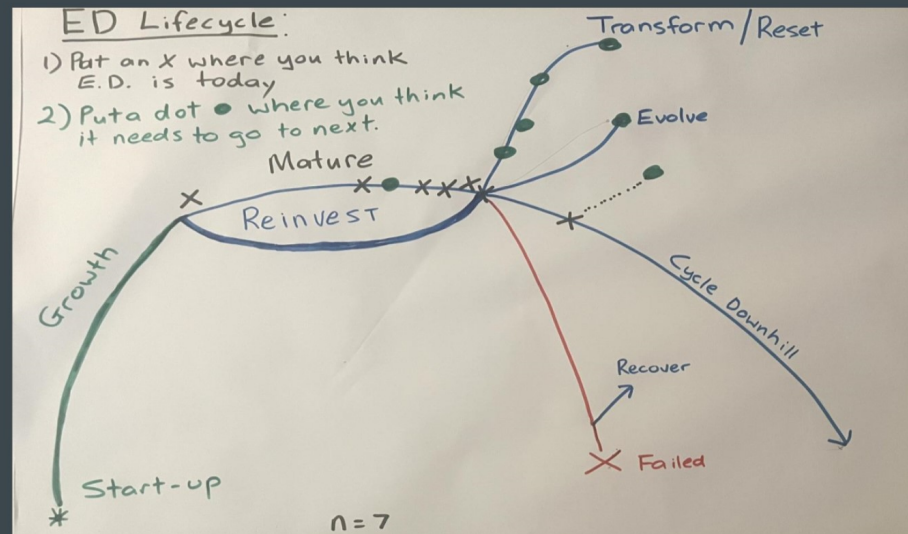 ED Lifecycle:
1) Put an X where you think
E.D. is today
2) Put a dot where you think
it needs to go to next.
Transform/Reset
Evolve
Mature
Reinvest
Growth
Cycle Downhill
Recover
Failed
Start-up
n = 7